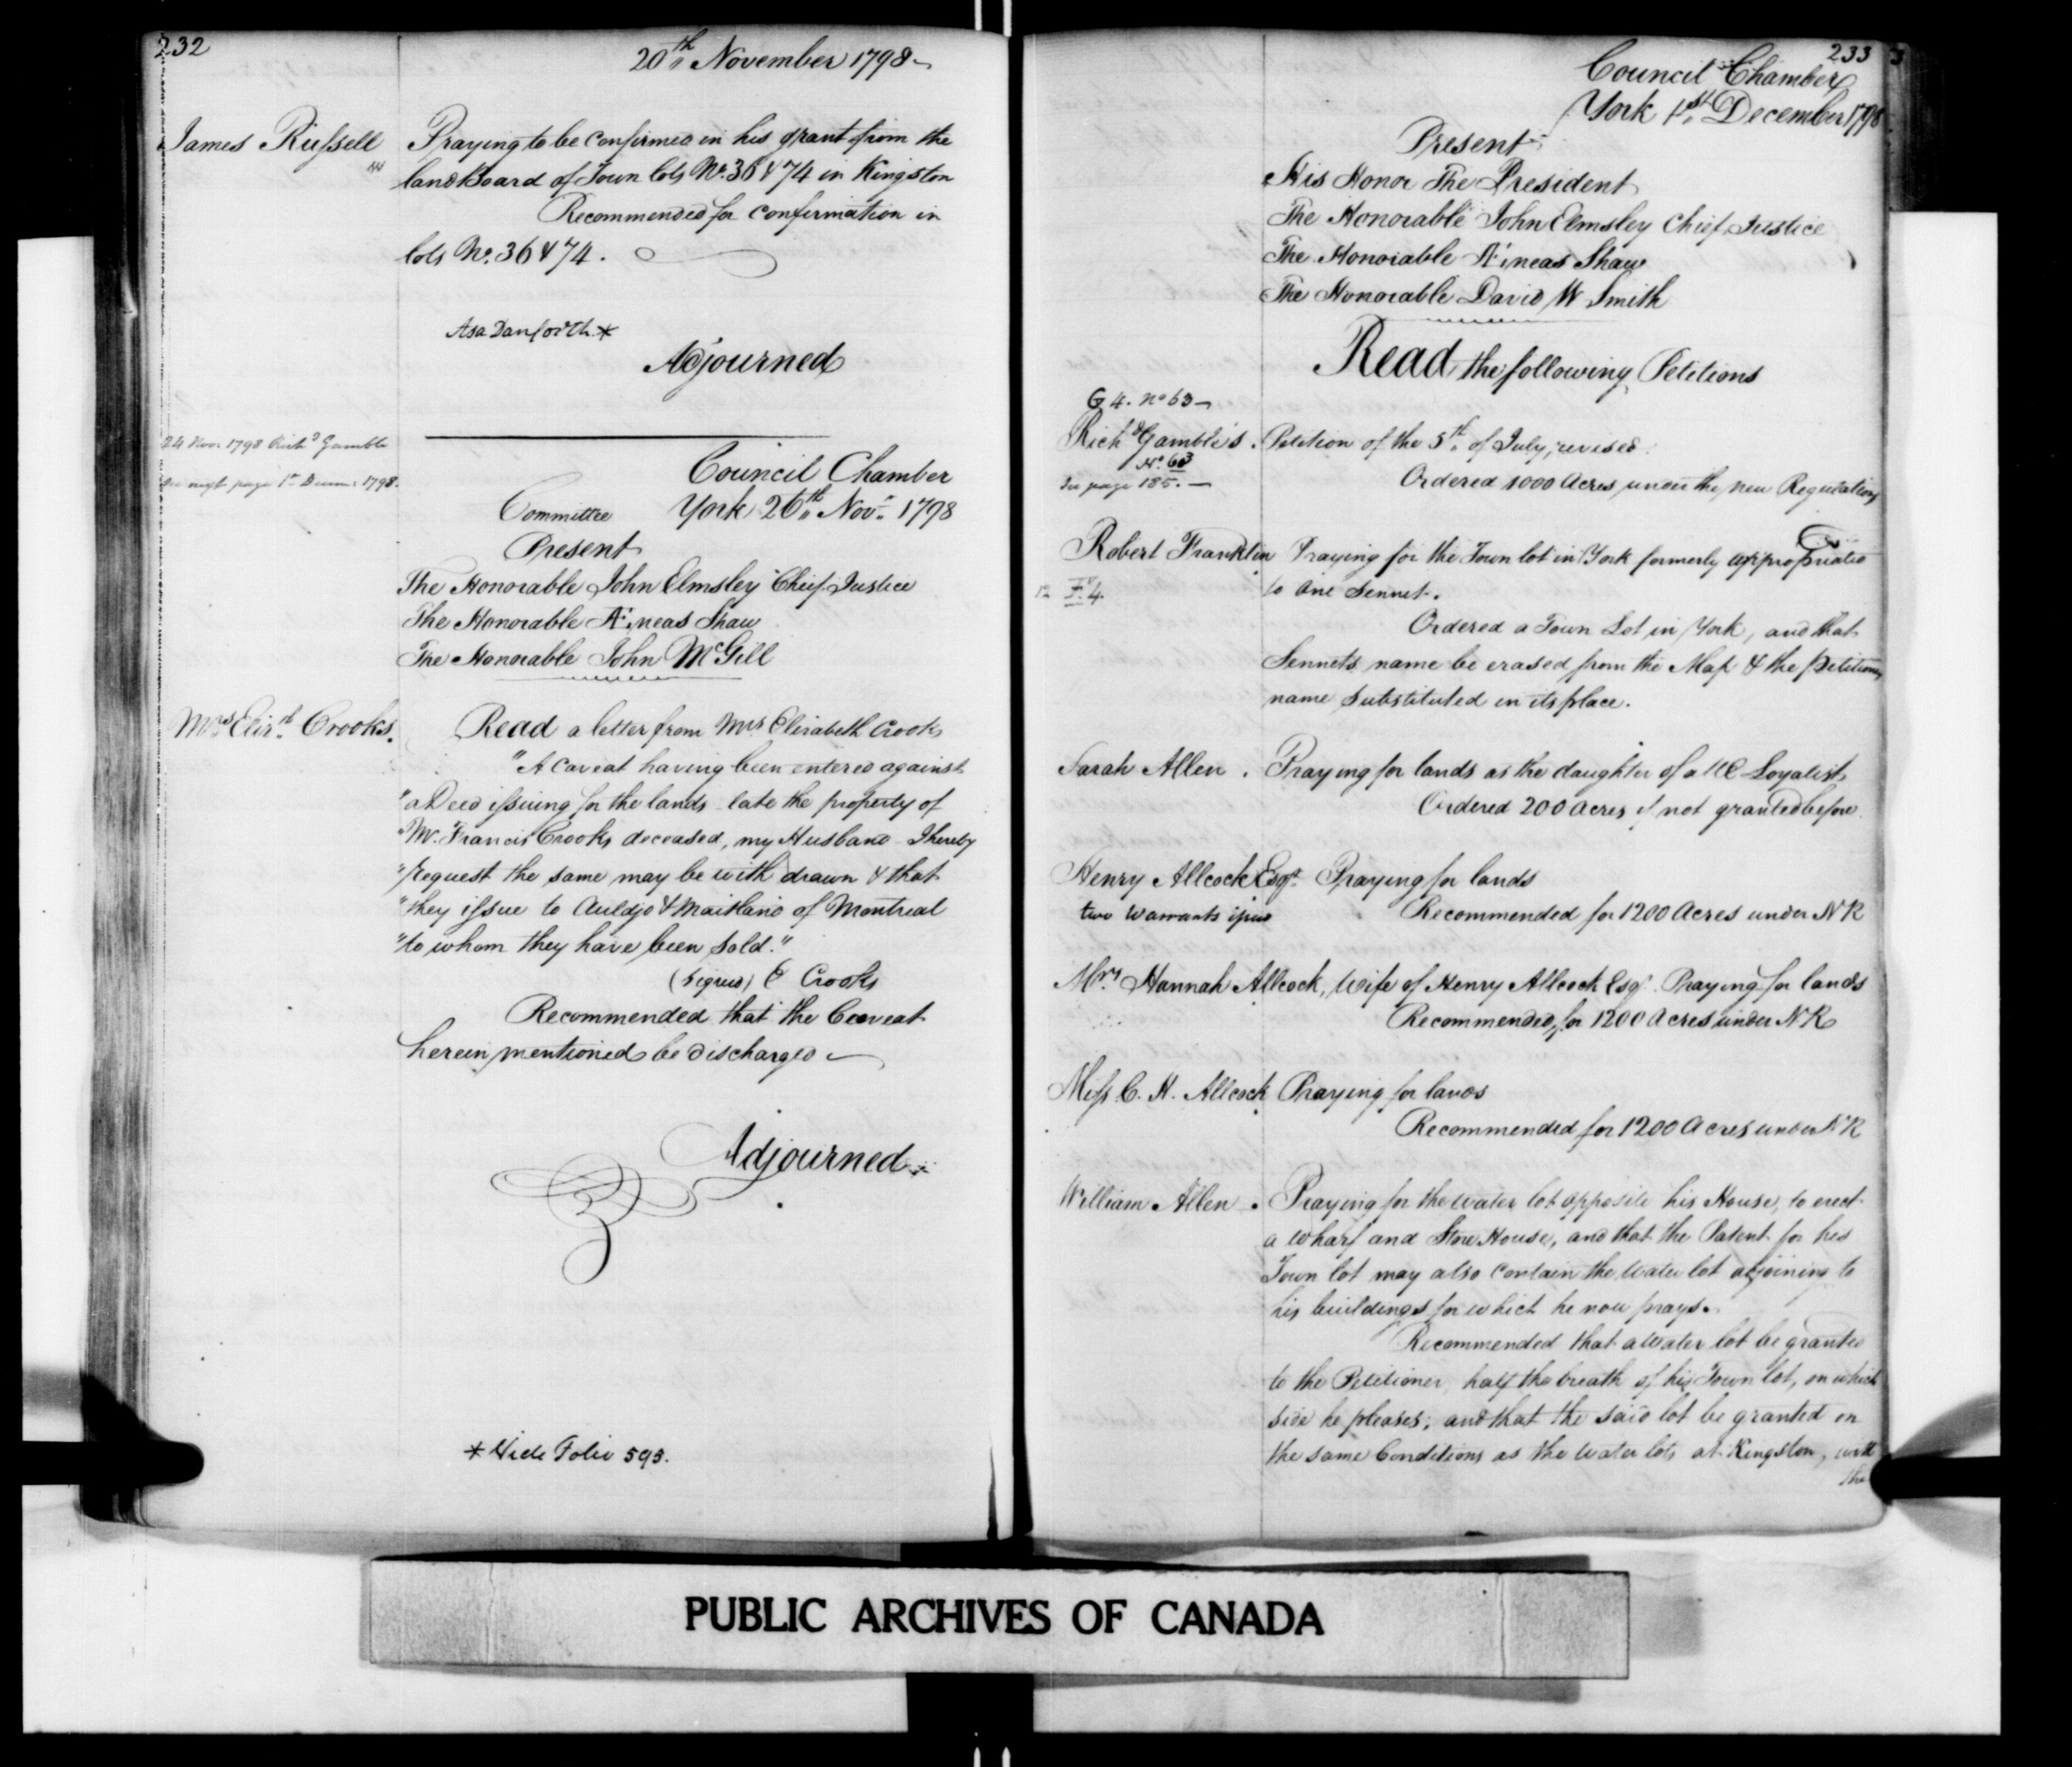 232
20th November 1798
James Russell
Praying to be confirmed in his grant from the
land Board of Town lots No. 36 & 74 in Kingston
Recommended for confirmation in
lots No. 36 & 74.
Asa Danforth *
Adjourned
24 Nov 1798 Richd Gamble
See next page 1st Decem: 1798.
Council Chamber
Committee York 26th Novr 1798
Present
The Honorable John Elmsley Chief Justice
The Honorable Æneas Shaw
The Honorable John McGill
Mrs Elizth Crooks.
Read a letter from Mrs Elizabeth Crooks
"A Caveat having been entered against
"a Deed issuing for the lands late the property of
"Mr. Francis Crooks deceased, my Husband I hereby
"request the same may be with drawn & that
"they issue to Auldjo & Maitland of Montreal
"to whom they have been sold."
(signed) E Crooks
Recommended that the Caveat
herein mentioned be discharged
Adjourned
* Vide Folio 593.
233
Council Chamber
York 1st December 1798
Present
His Honor The President
The Honorable John Elmsley Chief Justice
The Honorable Æneas Shaw
The Honorable David W Smith
Read the following Petitions
G 4. No 63
Richd Gamble's. Petition of the 5th of July, revised.
No. 63
See page 185.
Ordered 1000 Acres under the new Regulations
Robert Franklin Praying for the Town lot in York formerly appropriated
F. 4.
to one Sennet.
Ordered a Town Lot in York, and that
Sennets name be erased from the Map & the petitioners
name substituted in its place.
Sarah Allen. Praying for lands as the daughter of a UE Loyalist
Ordered 200 Acres if not granted before.
Henry Allcock Esqr. Praying for lands
two warrants issued
Recommended for 1200 Acres under N R
Mrs Hannah Allcock, Wife of Henry Allcock Esqr. Praying for lands
Recommended for 1200 Acres under N R
Miss C. H. Allcock Praying for lands
Recommended for 1200 Acres under N R
William Allen. Praying for the water lot opposite his House, to erect
a Wharf and Store House, and that the Patent for his
Town lot may also contain the water lot adjoining to
his buildings for which he now prays.
Recommended that a Water lot be granted
to the Petitioner half the breath of his Town lot, on which
side he pleases; and that the said lot be granted on
the same Conditions as the Water lots at Kingston, with
the
PUBLIC ARCHIVES OF CANADA